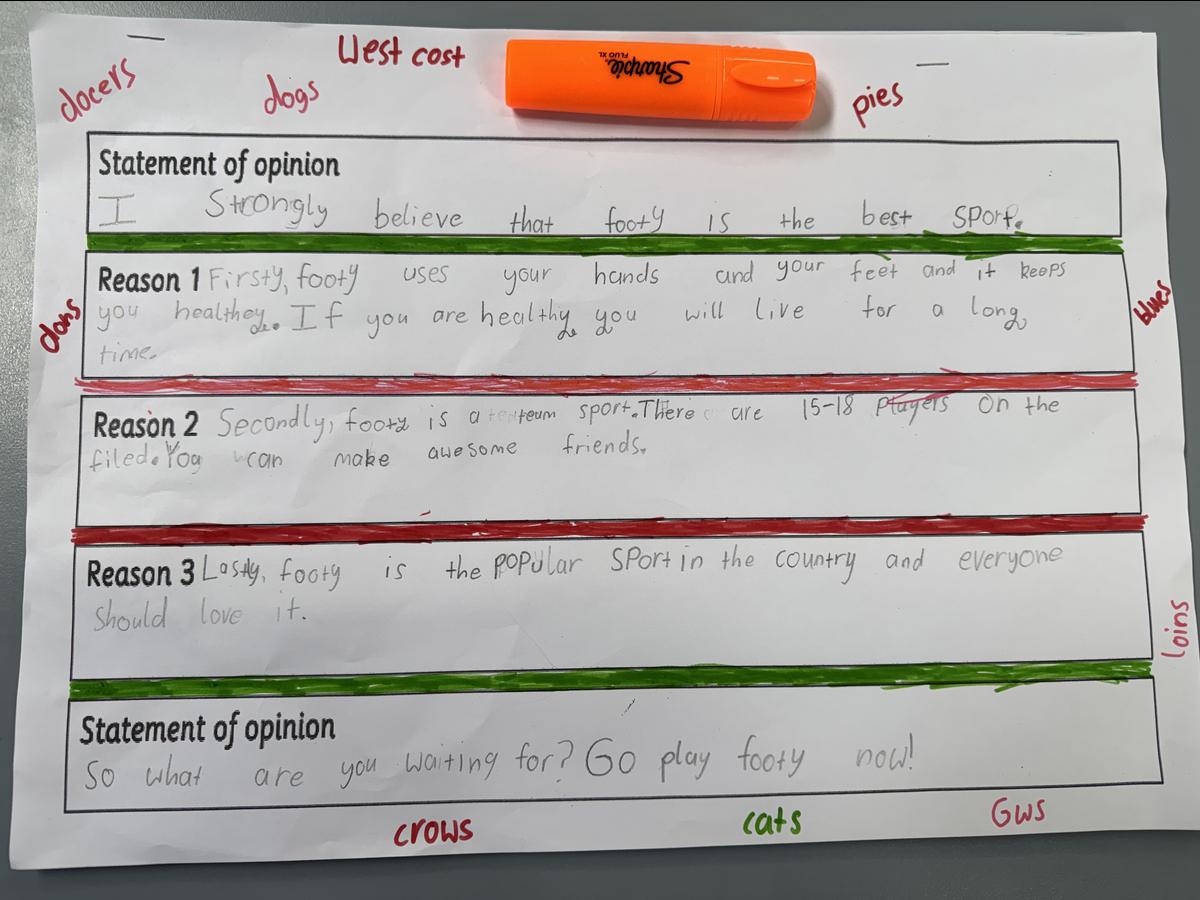 West cost
docers
dogs
Sharpie
FLUO XL
pies
Statement of opinion
I Strongly believe that footy is the best sport.
Reason 1 Firsty, footy uses your hands and your feet and it keeps
you healthey. If you are healthy you will live for a long
time.
dons
blues
Reason 2 Secondly, footy is a team sport. There are 15-18 players on the
filed. You can make awesome friends.
Reason 3 Lastly, footy is the popular sport in the country and everyone
should love it.
loins
Statement of opinion
So what are you waiting for? Go play footy now!
crows
cats
Gws